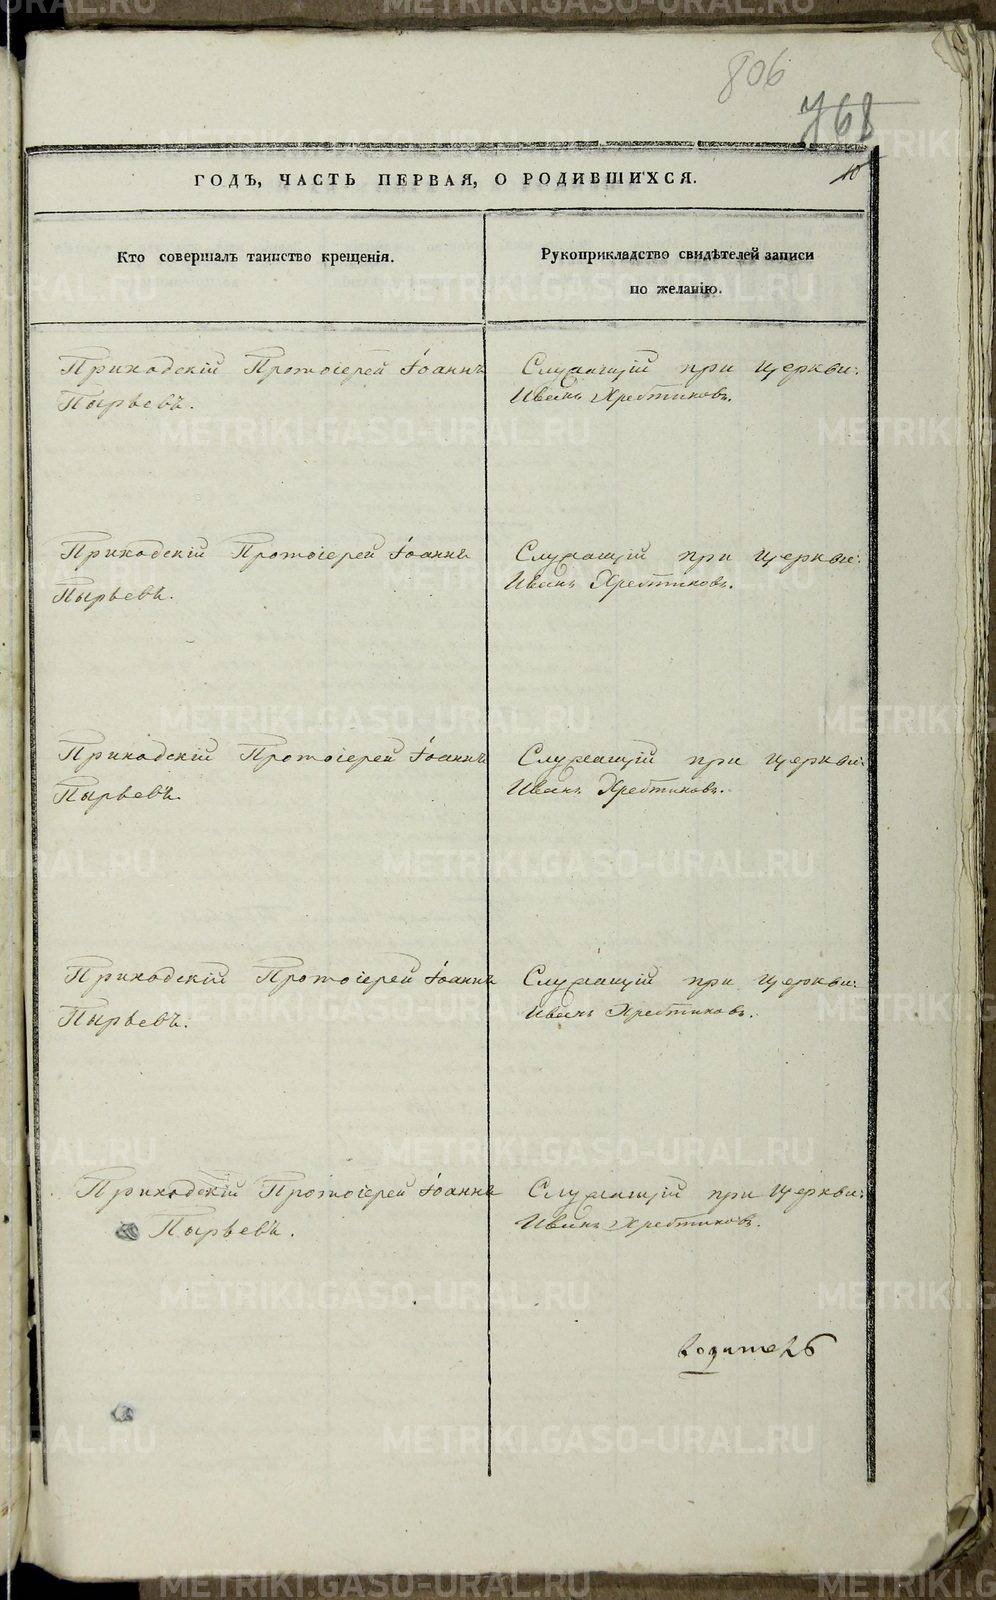 806
768
10
ГОДЪ, ЧАСТЬ ПЕРВАЯ, О РОДИВШИХСЯ.
Кто совершалъ таинство крещенія.
Рукоприкладство свидѣтелей записи
по желанію.
Приходскій Протоіерей Іоаннъ
Пырьевъ.
Служащій при церкви:
Иванъ Хребтиковъ.
Приходскій Протоіерей Іоаннъ
Пырьевъ.
Служащій при церкви:
Иванъ Хребтиковъ.
Приходскій Протоіерей Іоаннъ
Пырьевъ.
Служащій при церкви:
Иванъ Хребтиковъ.
Приходскій Протоіерей Іоаннъ
Пырьевъ.
Служащій при церкви:
Иванъ Хребтиковъ.
Приходскій Протоіерей Іоаннъ
Пырьевъ.
Служащій при церкви:
Иванъ Хребтиковъ.
METRIKI.GASO-URAL.RU